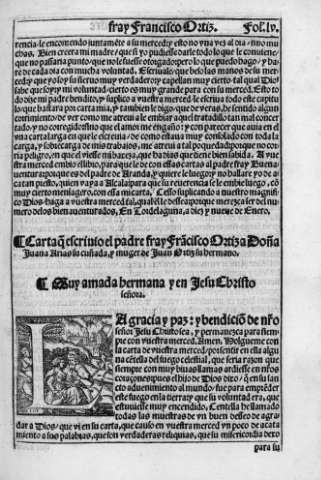 fray Francisco Ortiz. Fol. lv.
rencia le encomendo juntamẽte a su merced y esto no vna vez al dia / sino mu
chas. Bien creera mi madre / que si yo pudiesse darle todo lo que le conviene /
que no passaria punto que no le fuesse otorgado: pero lo que puedo hago / y ba
re de cada dia con mucha voluntad. Escriuale que beso las manos de su mer-
ced y que yo soy su sieruo muy verdadero y capellan muy cierto tal qual Dios
sabe que soy y mi voluntad cierto es muy grande para con su merced. Esto to
do dixe mi padre bendito / y suplico a vuestra merced le escriua todo este capitu
lo q̃ bastara por carta mia / y tambien le digo que de veras he sentido algun
corrimiento de ver como me atreui a le embiar aquel tratadillo tan mal concer
tado / y no corregido
carga / y sobrecarga de mis trabajos, me atreui a tal poquedad porque no cor
ria peligro, en que el viesse mi baxeza, que dias que tiene bien sabida. Si vue
stra merced embio el libro, para que le de con essas cartas al padre fray Buena
uentura porque es del padre de Aranda, y quiere le luego / y no ballare yo de a
catan puesto, quien vaya a Alcala para que su reuerencia se le embie luego, cõ
muy cierto mensagero, con esta mi carta. Cesso suplicando a nuestro magnifi
co Dios haga a vuestra merced tal, qual el le dessea porque merezca ser del nu
mero delos bien auenturados, En Tordelaguna, a diez y nueue de Enero,
¶ Carta q̃ escriuio el padre fray Frãcisco Ortiz a Doña
Juana Arias su cuñada, y muger de Juan Ortiz su hermano.
¶ Muy amada hermana y en Jesu Christo
señora.
LA gracia y paz: y bendiciõ de nr̃o
señor Jesu Christo sea, y permanezca para siem
pre con vuestra merced. Amen. Holgueme con
la carta de vuestra merced / por sentir en ella algu
na cẽtella del fuego celestial, que seria razon que
siempre con muy biuas llamas ardiesse en nr̃os
coraçones pues el hijo de Dios dixo / q̃ en su san
cto aduenimiento al mundo / fue para emprẽder
este fuego en la tierra y que su voluntad era, que
estuuiesse muy encendido, Centella he llamado
todas las muestras de vn buen desseo de agra
dar a Dios / que vi en su carta, que causo en vuestra merced vn poco de acata
miento a sus palabras, que son verdaderas reliquias, que su misericordia dexo
para su